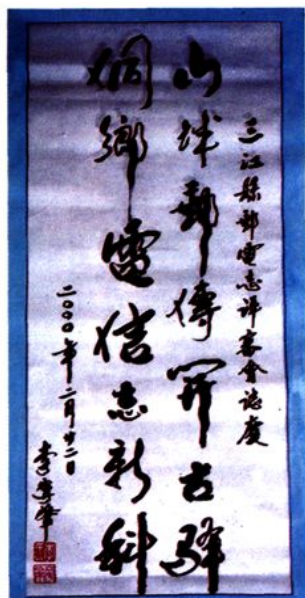 三江縣郵電志評審會誌慶
山城郵傳開古驛
侗鄉電信志新科
二〇〇〇年二月廿二日
李